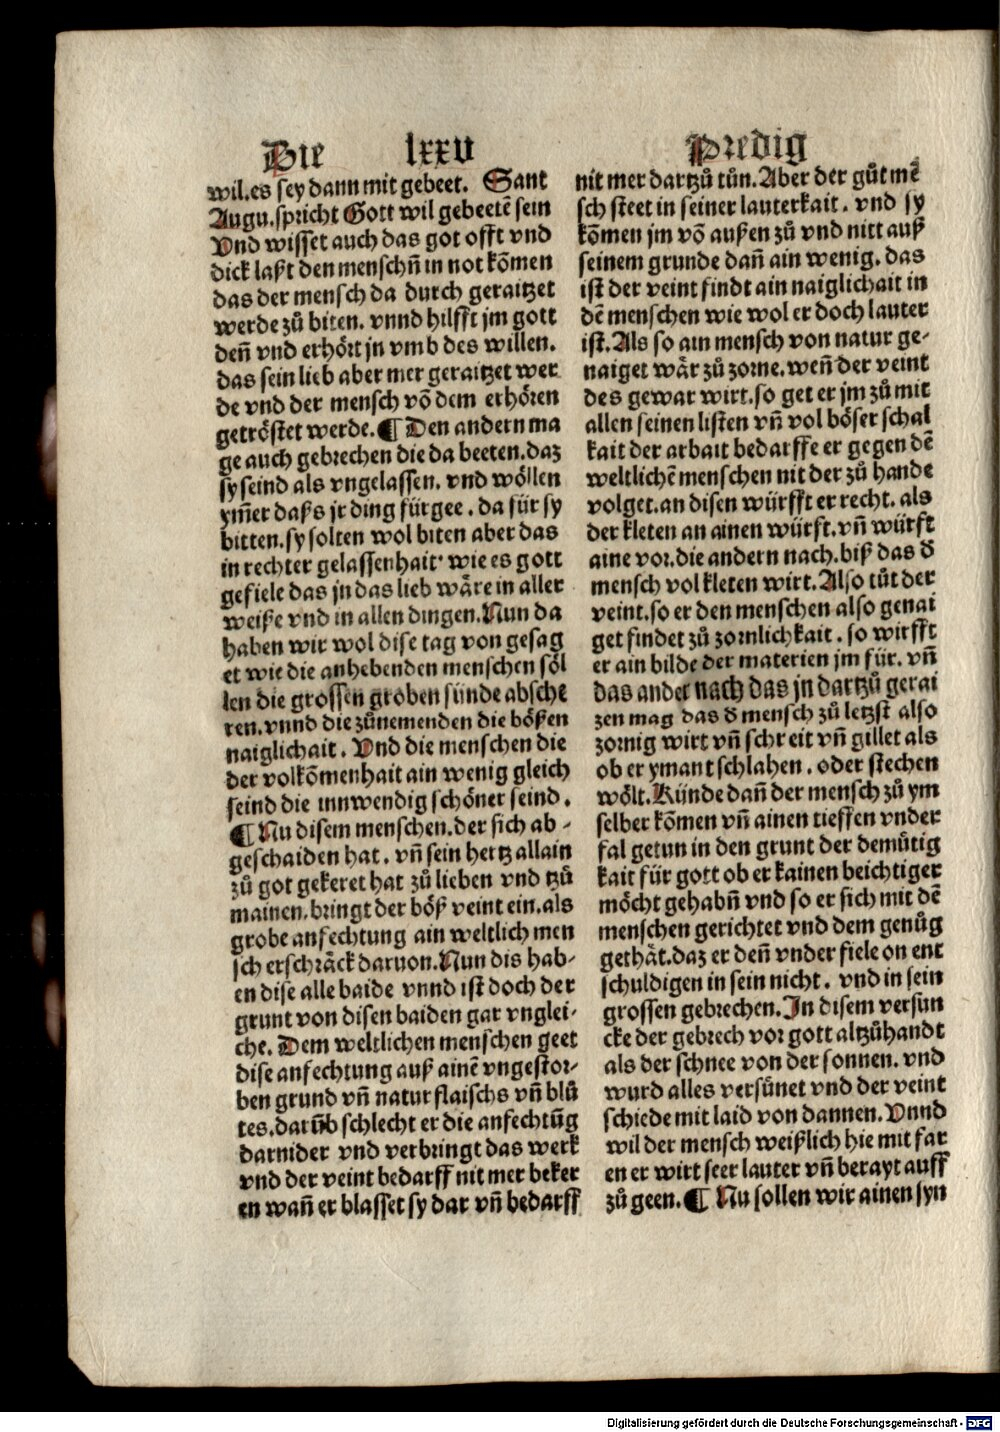 Die lxxv Predig
wil.es sey dann mit gebeet. Sant
Augu.spricht Gott wil gebeetē sein
Vnd wisset auch das got offt vnd
dick laßt den menschn̄ in not kōmen
das der mensch da durch geraitzet
werde zů biten. vnnd hilfft jm gott
den̄ vnd erhört jn vmb des willen.
das sein lieb aber mer geraitzet wer
de vnd der mensch vō dem erhören
getröstet werde.¶ Den andern ma
ge auch gebrechen die da beeten.daz
sy seind als vngelassen. vnd wöllen
ym̄er daßs jr ding für gee. da für sy
bitten.sy solten wol biten aber das
in rechter gelassenhait· wie es gott
gefiele das jn das lieb wäre in aller
weiße vnd in allen dingen.Nun da
haben wir wol dise tag von gesag
et wie die anhebenden menschen söl
len die grossen groben sünde absche
ren.vnnd die zůnemenden die bößen
naiglichait. Vnd die menschen die
der volkōmenhait ain wenig gleich
seind die innwendig schöner seind.
¶ Nu disem menschen.der sich ab-
geschaiden hat. vn̄ sein hertz allain
zů got gekeret hat zů lieben vnd tzů
mainen.bringt der böß veint ein.als
grobe anfechtung ain weltlich men
sch erschräck daruon.Nun dis hab-
en dise alle baide vnnd ist doch der
grunt von disen baiden gar vnglei-
che. Dem weltlichen menschen geet
dise anfechtung auß ainē vngestor-
ben grund vn̄ natur flaischs vn̄ blů
tes.darūb schlecht er die anfechtūg
darnider vnd verbringt das werk
vnd der veint bedarff nit mer beker
en wan̄ er blasset sy dar vn̄ bedarff
nit mer dartzů tůn.Aber der gůt mē
sch steet in seiner lauterkait. vnd sy
kōmen jm vō außen zů vnd nitt auß
seinem grunde dan̄ ain wenig. das
ist der veint findt ain naiglichait in
dē menschen wie wol er doch lauter
ist.Als so ain mensch von natur ge-
naiget wär zů zorne.wen̄ der veint
des gewar wirt.so get er jm zů mit
allen seinen listen vn̄ vol böser schal
kait der arbait bedarffe er gegen dē
weltlichē menschen nit der zů hande
volget.an disen würfft er recht. als
der kleten an ainen würft.vn̄ würft
aine vor.die andern nach.biß das d̄
mensch vol kleten wirt.Also tůt der
veint.so er den menschen also genai
get findet zů zornlichkait. so wirfft
er ain bilde der materien jm für. vn̄
das ander nach das jn dartzů gerai
zen mag das d̄ mensch zů letzst also
zornig wirt vn̄ schreit vn̄ gillet als
ob er ymant schlahen. oder stechen
wölt.Künde dan̄ der mensch zů ym
selber kōmen vn̄ ainen tieffen vnder
fal getun in den grunt der demůtig
kait für gott ob er kainen beichtiger
möcht gehabn̄ vnd so er sich mit dē
menschen gerichtet vnd dem genůg
gethät.daz er den̄ vnder fiele on ent
schuldigen in sein nicht. vnd in sein
grossen gebrechen.In disem versun
cke der gebrech vor gott altzůhandt
als der schnee von der sonnen. vnd
wurd alles versünet vnd der veint
schiede mit laid von dannen.Vnnd
wil der mensch weißlich hie mit far
en er wirt seer lauter vn̄ berayt auff
zů geen.¶ Nu sollen wir ainen syn
Digitalisierung gefördert durch die Deutsche Forschungsgemeinschaft - DFG